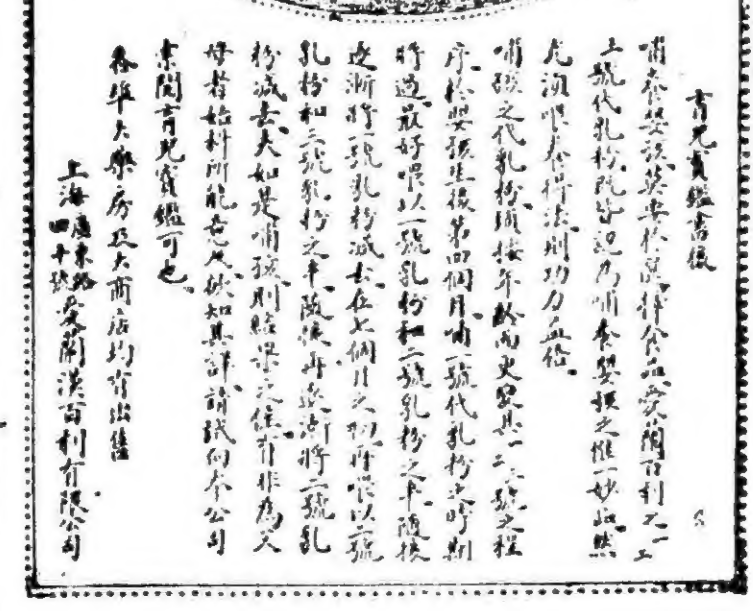 育兒寶鑑書後
哺養嬰孩莫要於選擇食品愛蘭百利之一二
三號代乳粉既皆認為哺養嬰孩之惟一妙品然
尤須喂養得法則功力益倍
哺孩之代乳粉須按年齡而更變其一二三號之程
序於嬰孩生後第四個月哺一號代乳粉之時期
將過最好喂以一號乳粉和二號乳粉之半隨後
逐漸將一號乳粉減去在七個月之初再喂以一號
乳粉和二號乳粉之半隨後再逐漸將二號乳
粉減去夫如是哺孩則結果之佳有非為父
母者始料所能意及欲知其詳請試向本公司
索閱育兒寶鑑可也
各埠大藥房及大商店均有出售
上海廣東路四十號愛蘭漢百利有限公司